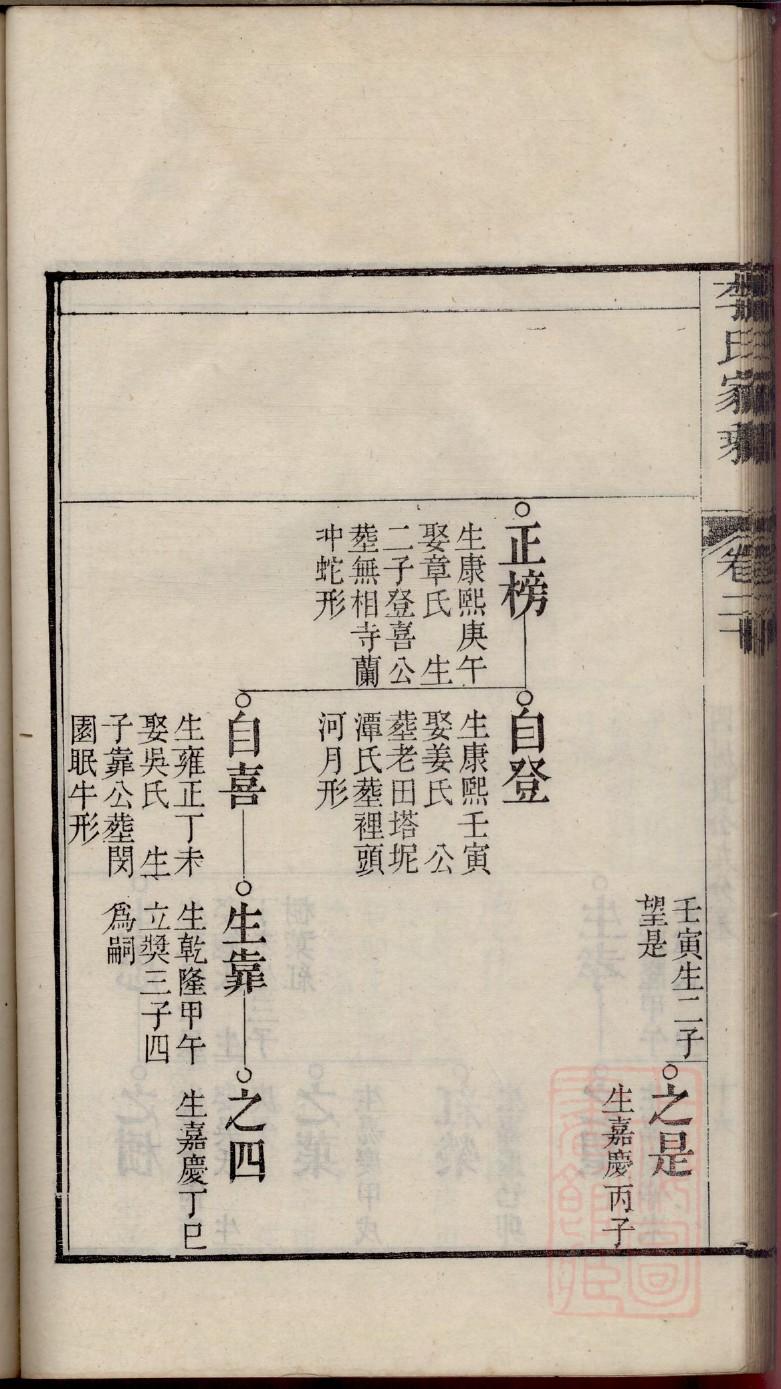 氏家乘
卷二十
壬寅生二子
望是
之是
生嘉慶丙子
正榜
生康熙庚午
娶章氏 生
二子登喜公
塟無相寺蘭
冲蛇形
自登
生康熙壬寅
娶姜氏 公
塟老田塔坭
潭氏塟裡頭
河月形
自喜
生雍正丁未
娶吳氏 生
子靠公塟閔
園眠牛形
生靠
生乾隆甲午
立獎三子四
爲嗣
之四
生嘉慶丁巳